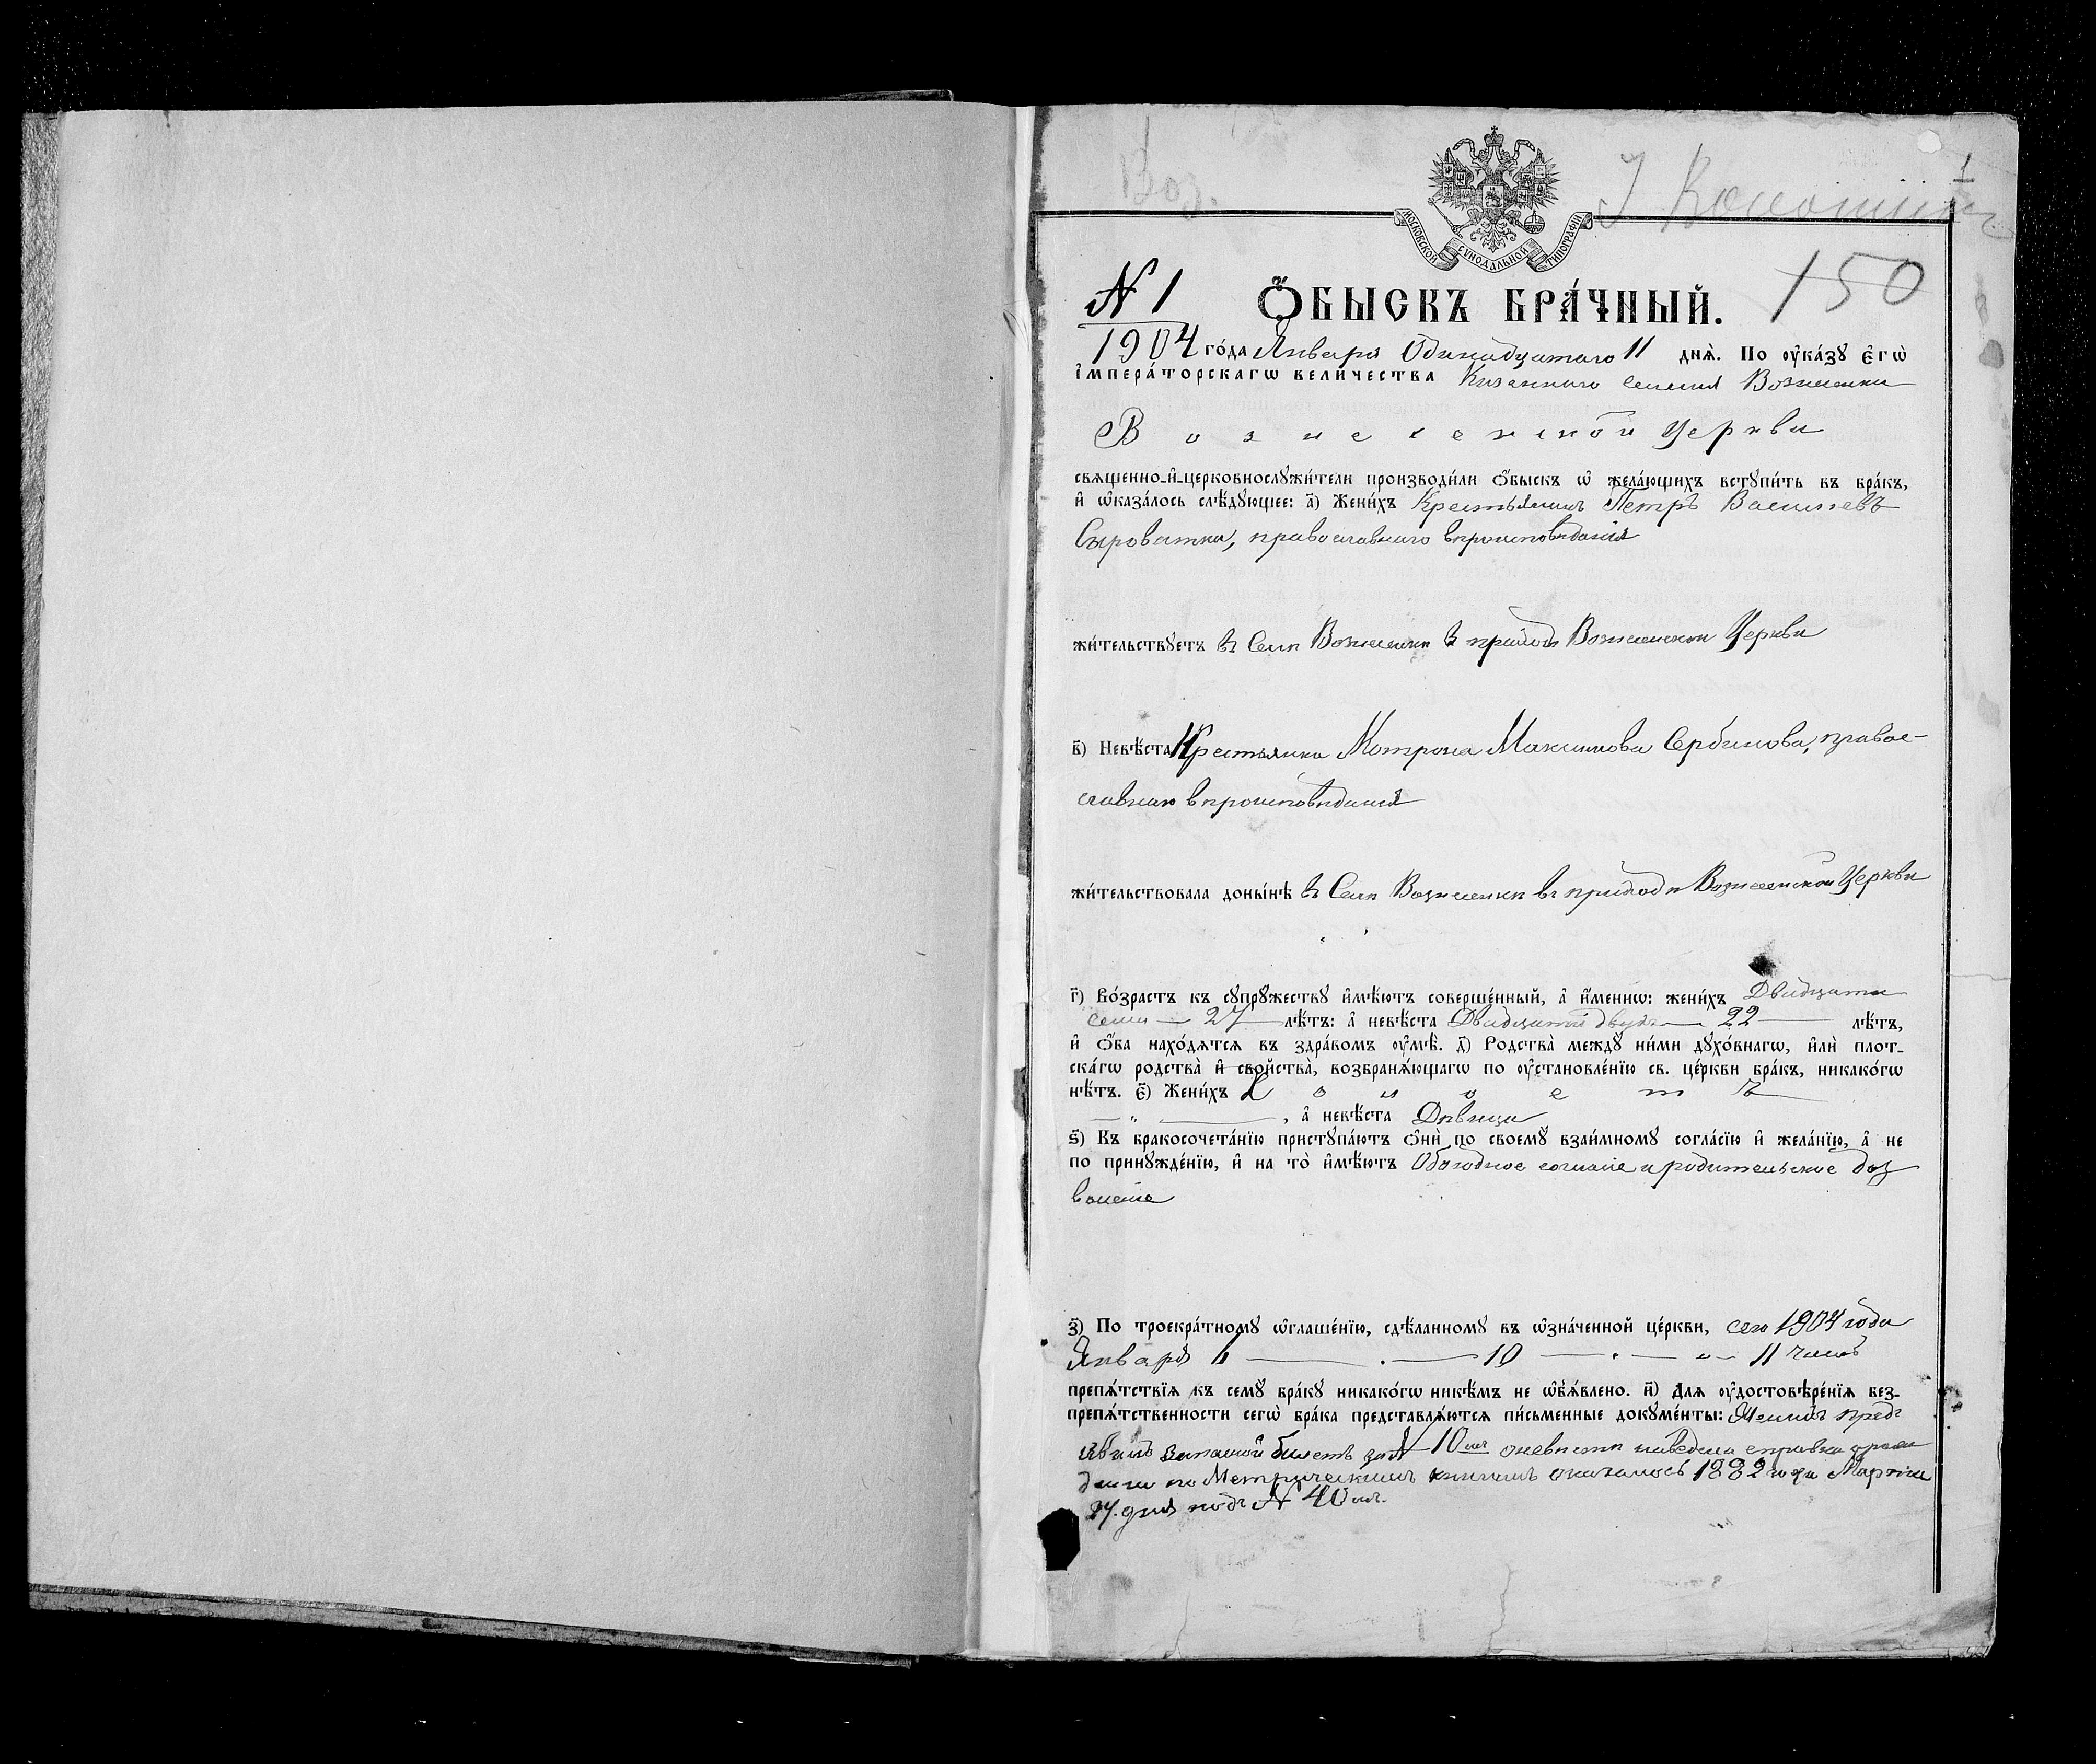 Воз.
1
МОСКОВСКОЙ СѴНОДАЛЬНОЙ ТИПОГРАФІИ
150
N 1
Ѻ҆БЫСКЪ БРА́ЧНЫЙ.
1904 го́да Января Одинадцатаго 11 днѧ̀. По ѹ҆ка́зꙋ є҆гѡ̀
і҆мпера́торскагѡ вели́чества Казеннаго селенія Вознесенки
Вознесенской Церкви
свѧщенно-и҆-церковнослꙋжи́тели производи́ли ѻ҆́быскъ ѡ҆ жела́ющихъ встꙋпи́ть въ бра́къ,
и҆ ѡ҆каза́лось слѣ́дꙋющее: а҃) Жени́хъ Крестьянинъ Петръ Васильевъ
Сыроватка, православнаго вѣроисповѣданія
жи́тельствꙋетъ въ Селѣ Вознесенки въ приходѣ Вознесенской Церкви
в҃) Невѣ́ста Крестьянка Мотрона Максимова Сербинова, право-
славнаго вѣроисповѣданія
жи́тельствовала доны́нѣ въ Селѣ Вознесенки въ приходѣ Вознесенской Церкви
г҃) Во́зрастъ къ сꙋпрꙋ́жествꙋ и҆мѣ́ютъ соверше́нный, а҆ и҆́меннѡ: жени́хъ Двадцати
семи 27 лѣ́тъ: а҆ невѣ́ста Двадцати двухъ 22 лѣ́тъ,
и҆ ѻ҆́ба нахо́дѧтсѧ въ здра́вомъ ѹ҆мѣ̀. д҃) Родства̀ междꙋ ни́ми дꙋхо́внагѡ, и҆лѝ плот-
ска́гѡ родства̀ и҆ сво́йства̀, возбранѧ́ющагѡ по ѹ҆становле́нїю св. це́ркви бра́къ, никако́гѡ
нѣ́тъ. є҃) Жени́хъ Холостъ
, а҆ невѣ́ста Дѣвица
ѕ҃) Къ бракосочета́нїю пристꙋпа́ютъ ѻ҆нѝ по своемꙋ̀ взаи́мномꙋ согла́сїю и҆ жела́нїю, а҆ не
по принꙋжде́нїю, и҆ на то̀ и҆мѣ́ютъ Обоюдное согласіе и родительское доз
воленіе
з҃) По троекра́тномꙋ ѡ҆глаше́нїю, сдѣ́ланномꙋ въ ѡ҆зна́ченной це́ркви, сего 1904 года
Января 6 10 11 чиселъ
препѧ́тствїѧ къ семꙋ̀ бра́кꙋ никако́гѡ никѣ́мъ не ѡ҆б̾ѧ́влено. и҃) Длѧ ѹ҆достовѣ́ре́нїѧ без-
препѧ́тственности сегѡ̀ бра́ка представлѧ́ютсѧ пи́сьменные докꙋме́нты: Женихъ предъ
явилъ запасной билетъ за N 10 о невѣсти наведена справка о рож
деніи по Метрическимъ книгамъ оказалось 1882 года Марта
27. дня подъ N 40